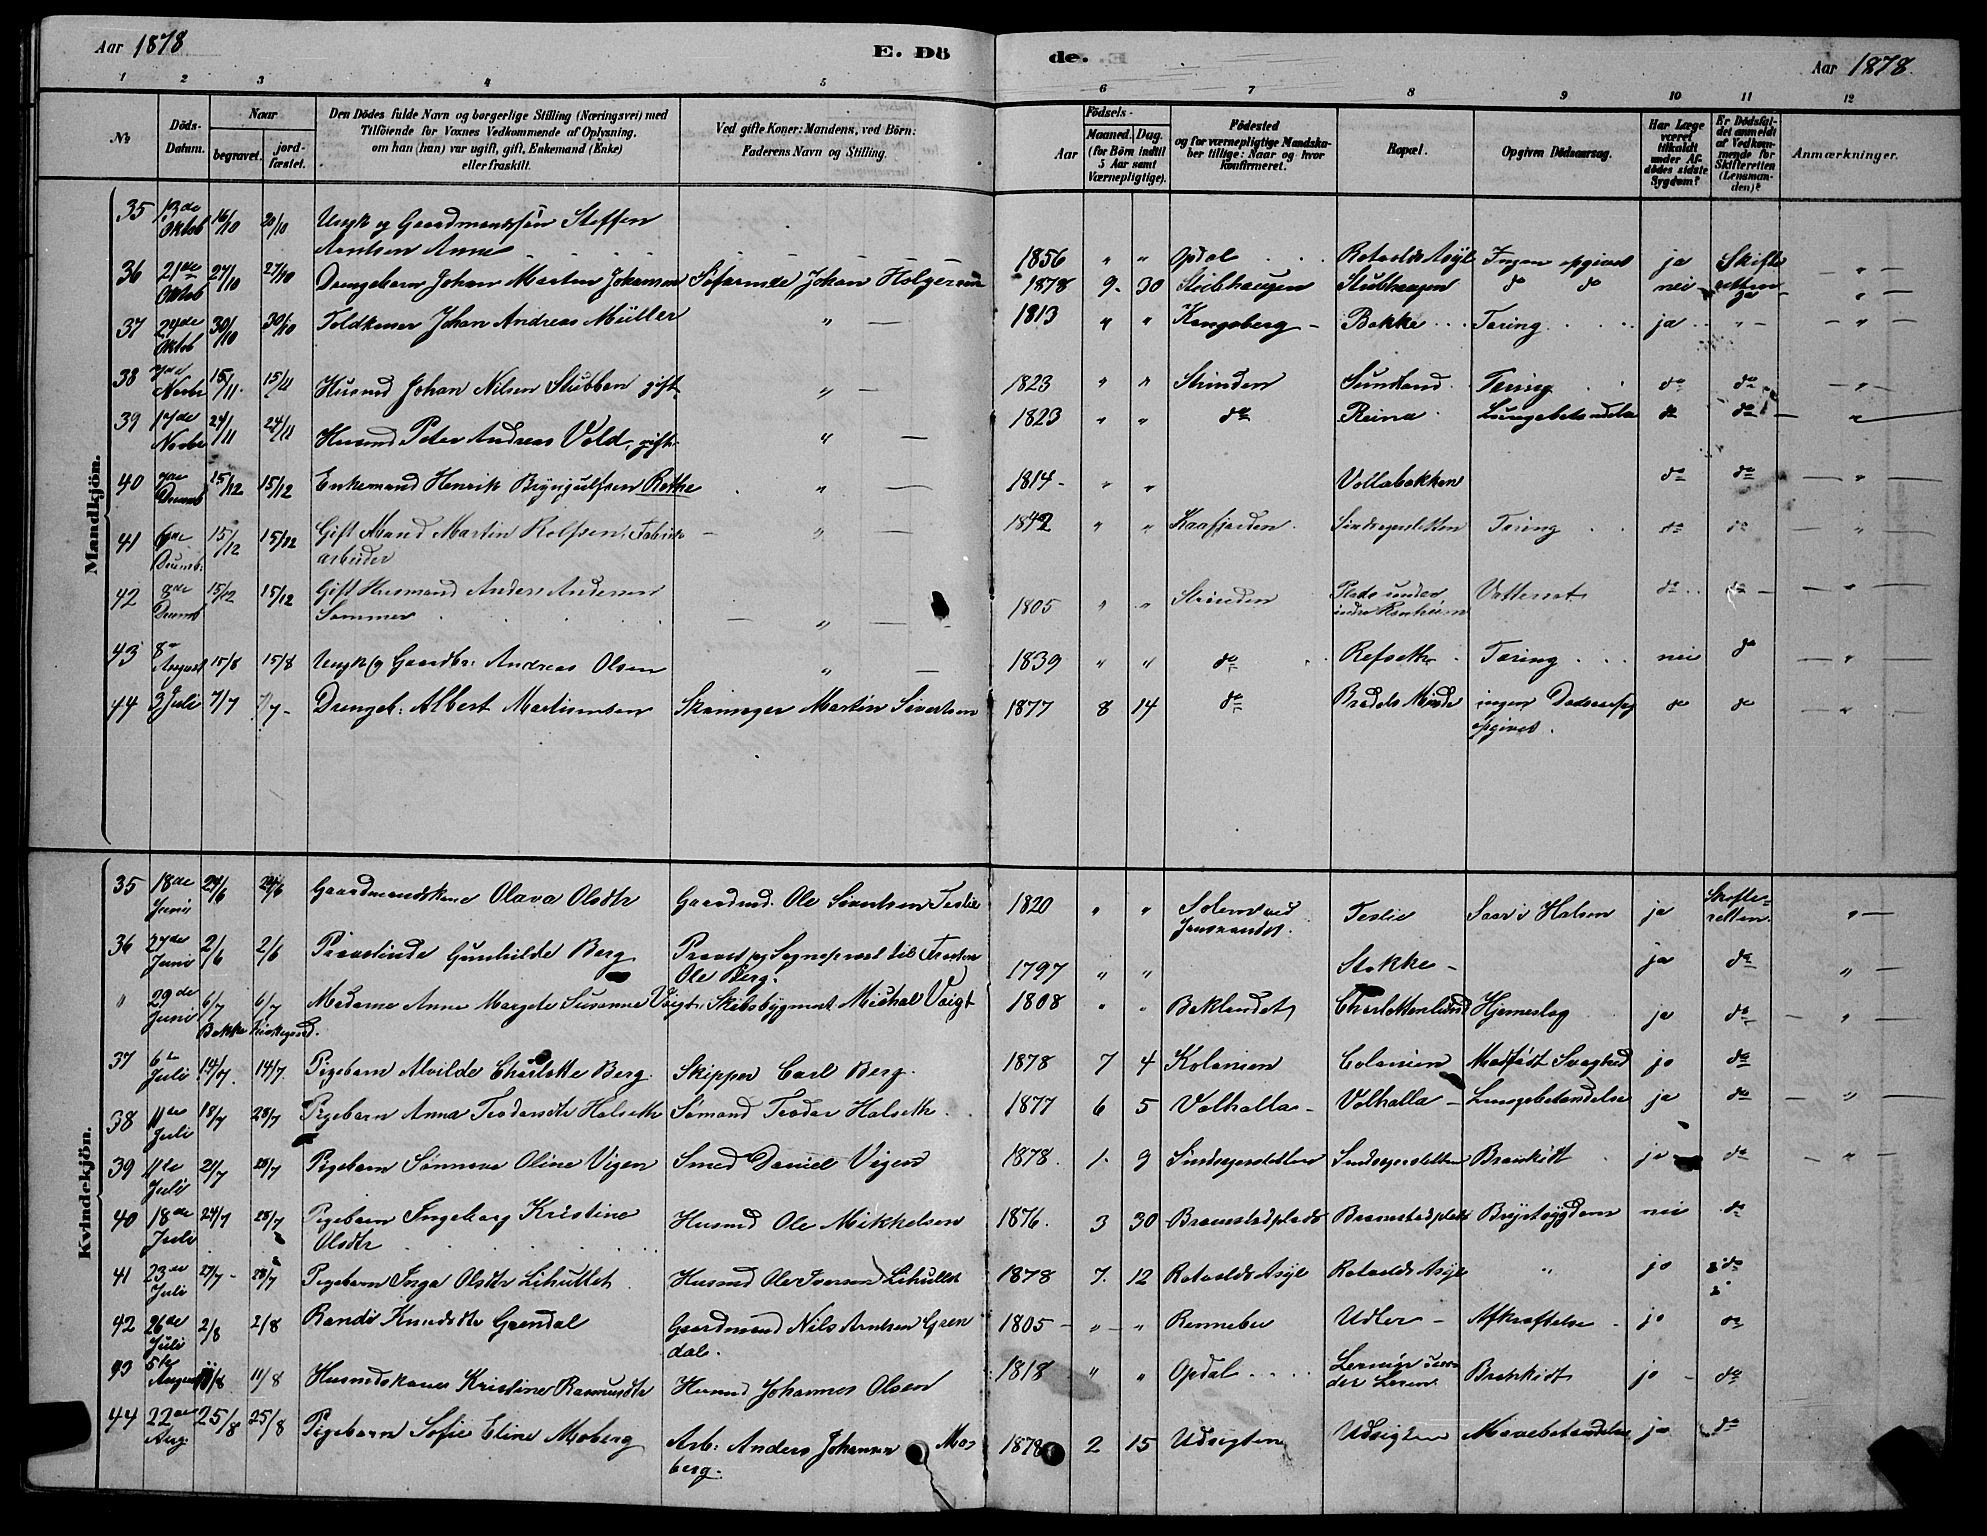 Aar 1878
E. Dö de.
Aar 1878.
1 2 3 4 5 6 7 8 9 10 11 12
№
Döds-Datum.
Naar
begravet.
jordfæstet.
Den Dödes fulde Navn og borgerlige Stilling (Næringsvei) med
Tilföiende for Voxnes Vedkommende af Oplysning,
om han (hun) var ugift, gift, Enkemand (Enke)
eller fraskilt.
Ved gifte Koner: Mandens, ved Börn:
Faderens Navn og Stilling.
Födsels-
Aar
Maaned. Dag.
(for Börn indtil
5 Aar samt
Værnepligtige).
Födested
og for værnepligtige Mandskaber tillige: Naar og hvor
konfirmeret.
Bopæl.
Opgiven Dödsaarsag.
Har Læge
været
tilkaldt
under Afdödes sidste
Sygdom?
Er Dödsfaldet anmeldt
af Vedkommende for
Skifteretten
(Lensmanden)?
Anmærkninger.
Mandkjön.
35 13de Oktob 16/10 20/10 Ungk og Gaardmandssøn Steffen
Arntsen Aune 1856 " " Opdal Rotvolds Asyl Ingen opgivet ja Skifteretten "
36 21de Oktob 27/10 27/10 Drengebarn Johan Martin Johansen Søfarende Johan Holgersen 1878 9 30 Stubhaugen Stubhaugen do do nei ja "
37 24de Oktob 30/10 30/10 Toldkasser Johan Andreas Müller " 1813 " " Kongsberg Bakke Tæring ja " "
38 Novbr 15/11 15/11 Husmd Johan Nilsen Stubben gift " 1823 " " Strinden Sundland Tæring do do "
39 17de Novbr 24/11 24/11 Husmd Peter Andreas Vold, gift " 1823 " " do Reina Lungebetændelse do do "
40 Decemb 15/12 15/12 Enkemand Henrik Brynjulfsen Rothe " 1814 " " Vollabakken do do "
41 6de Decemb. 15/12 15/12 Gift Mand Martin Rolfsen, Fabrik-
arbeider " 1842 " " Kaafjorden Sindsygesletten Tæring do do "
42 8de Decemb 15/12 15/12 Gift Husmand Anders Andersen
Sommer " 1805 " " Strinden Plads under
indre Ranheim Vattersot do do "
43 8de August 15/8 15/8 Ungk og Gaardbr: Andreas Olsen " 1839 " " do Refseth Tæring nei do "
44 3 Juli 7/7 7/7 Drengeb: Albert Martinsen Skomager Martin Sivertsen 1877 8 14 do ingen Dødsaarsag
opgivet. do do "
Kvindekjön.
35 18de Juni 24/6 24/6 Gaardmandskone Olava Olsdtr Gaardmd. Ole Sivertsen Teslie 1820 " " Solem ved
Teslie Saar i Halsen ja Skifteretten. "
36 27de Juni 2/6 2/6 Provstinde Gunhilde Berg Provst og Sognepræst til Frosten
Ole Berg. 1797 " " Stokke ja do "
" 29de Juni 6/7 6/7 Madame Anne Margrete Susanne Voigt, Skibsbygmest. Michal Voigt 1808 " " Baklandet Charlottenlund Hjerneslag ja do "
Bakke Kirkegaard.
37 6te Juli 14/7 14/7 Pigebarn Alvilde Charlotte Berg Skipper Carl Berg. 1878 7 4 Kolonien Colonien Medfødt Svaghed ja do
38 11te Juli 18/7 28/7 Pigebarn Anna Teodorsdtr Halseth Sømand Teodor Halseth 1877 6 5 Valhalla Valhalla Lungebetændelse ja do "
39 11te Juli 21/7 28/7 Pigebarn Sønneva Oline Vigen Smed Daniel Vigen 1878. 1 9 Sindsygesletten Sindsygesletten Bronkidt ja do "
40 18de Juli 24/7 28/7 Pigebarn Ingeborg Kristine
Olsdtr Husmd Ole Mikkelsen 1876. 3 30 Bromstadplads Bromstadplads Brystsygdom nei do
41 23de Juli 27/7 28/7 Pigebarn Inga Olsdtr Lihullet Husmd Ole Iversen Lihullet 1878 7. 12 Rotvolds Asyl Rotvolds Asyl " ja do
42 26de Juli 2/8 2/8 Randi Knudsdtr Grendal Gaardmand Nils Arntsen Gren
dal. 1805 " " Rennebu Udler Afkræftelse ja do
43 5te August 11/8 11/8 Husmdskone Kristine Rasmusdtr Husmd Johannes Olsen 1818 " " Opdal under Leren Bronkidt ja do
44 22de Aug. 25/8 25/8 Pigebarn Sofie Eline Moberg Arb: Anders Johansen Mo-
berg. 1878 2 15 Udsigten Udsigten Mavebetændelse ja do